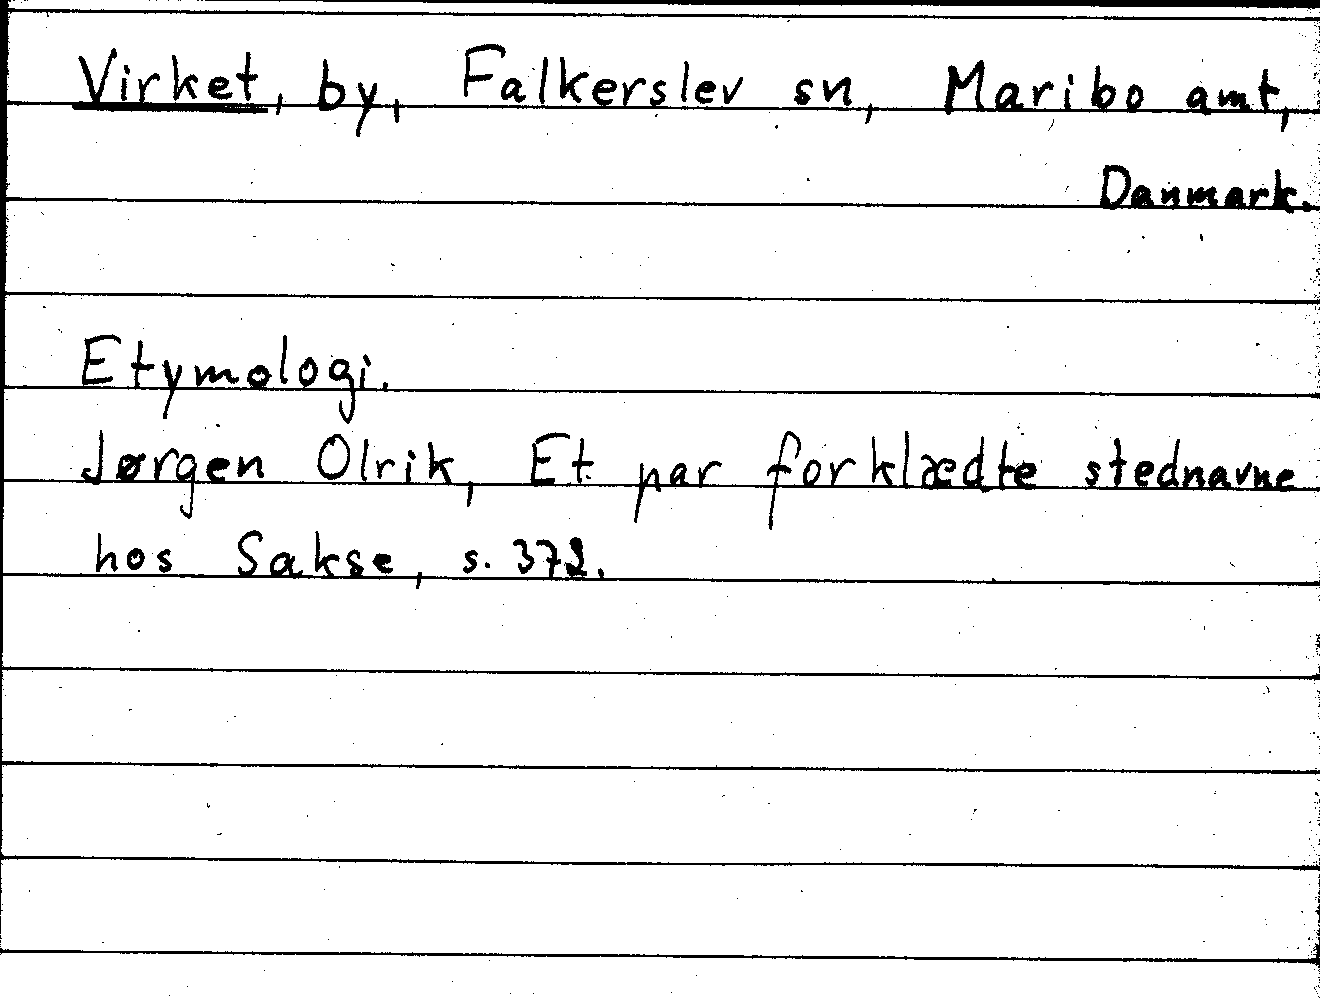 Virket, by, Falkerslev sn, Maribo amt,
Danmark.
Etymologi.
Jørgen Olrik, Et par forklædte stednavne
hos Sakse, s. 372.